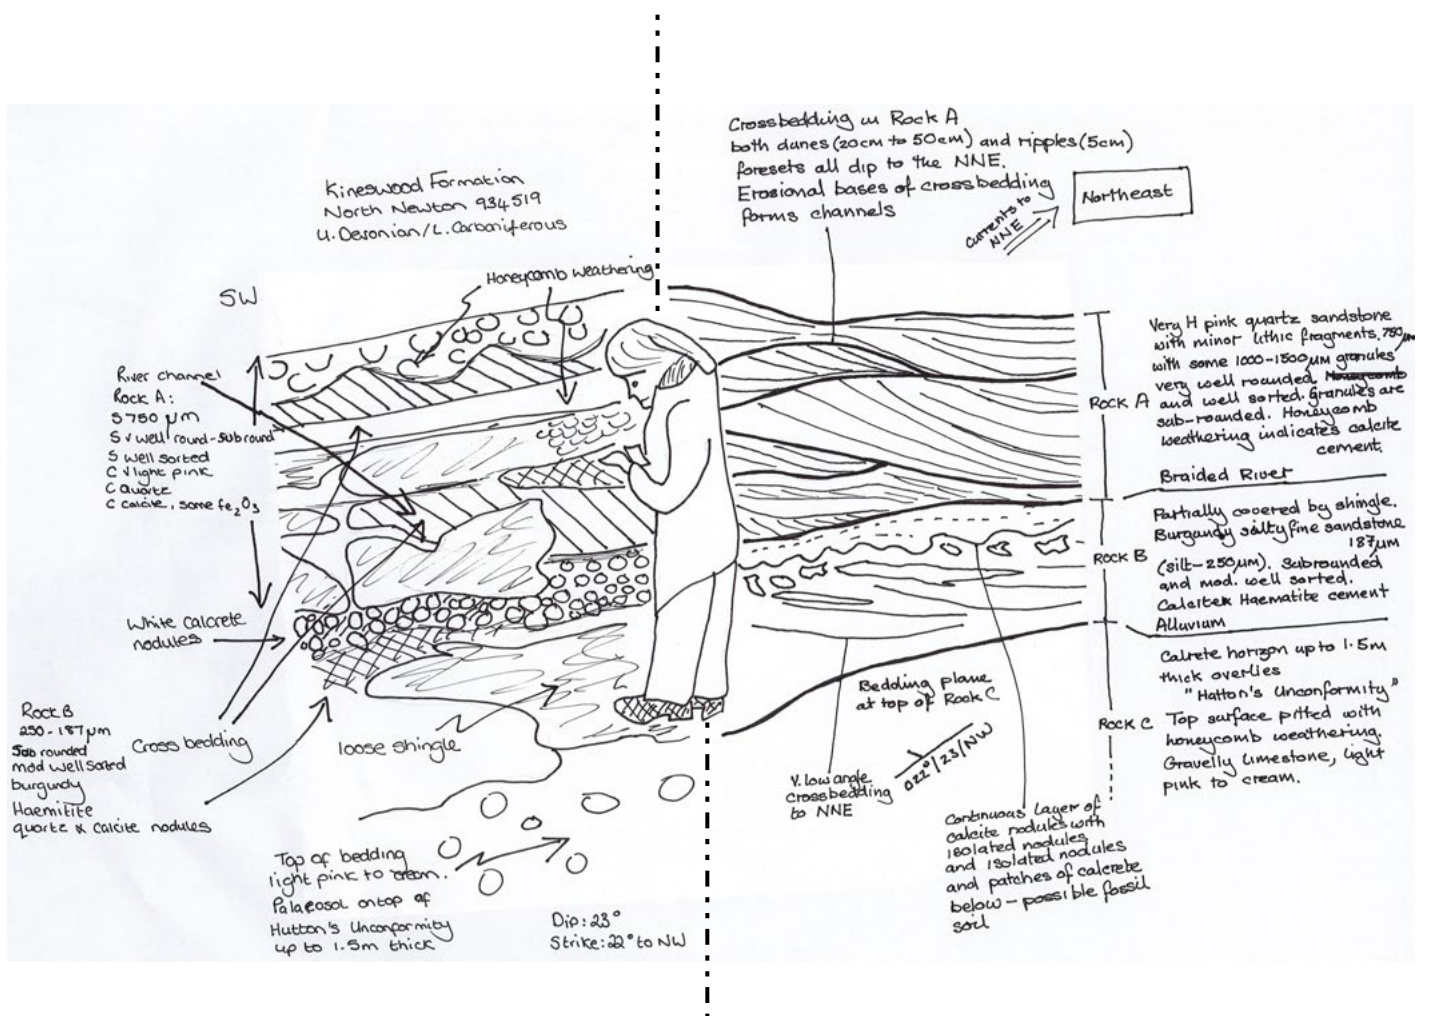 Kineswood Formation
North Newton 934519
U. Devonian/L. Carboniferous
SW
Honeycomb weathering
River channel
Rock A:
S 750 µm
S v well round-sub round
S well sorted
C v light pink
C quartz
C calcite, some Fe2O3
White calcrete
nodules
Rock B
250-187µm
Sub rounded
mod well sorted
burgundy
Haemitite
quartz & calcite nodules
Cross bedding
loose shingle
Top of bedding
light pink to cream.
Palaeosol on top of
Hutton's Unconformity
up to 1.5m thick
Dip: 23°
Strike: 22° to NW
Crossbedding in Rock A
both dunes (20cm to 50cm) and ripples (5cm)
foresets all dip to the NNE.
Erosional bases of crossbedding
forms channels
Currents to
NNE
Northeast
ROCK A
Very H pink quartz sandstone
with minor lithic fragments. 750µm
with some 1000-1500µm granules
very well rounded Honeycomb
and well sorted. Granules are
sub-rounded. Honeycomb
weathering indicates calcite
cement.
Braided River
ROCK B
Partially covered by shingle.
Burgundy silty fine sandstone
187µm
(silt-250µm). Subrounded
and mod. well sorted.
Calcite & Haematite cement
Alluvium
ROCK C
Calrete horizon up to 1.5m
thick overlies
"Hatton's Unconformity"
Top surface pitted with
honeycomb weathering.
Gravelly limestone, light
pink to cream.
Bedding plane
at top of Rock C
022°/23/NW
V. low angle
crossbedding
to NNE
Continuous layer of
calcite nodules with
isolated nodules
and isolated nodules
and patches of calcrete
below - possible fossil
soil